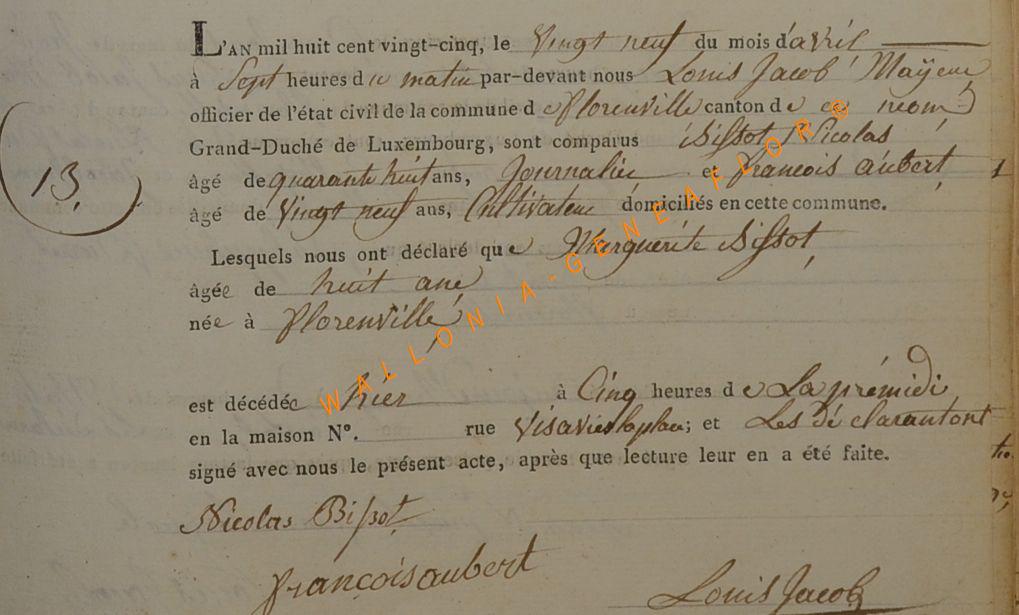 L'AN mil huit cent vingt-cinq, le Vingt neuf du mois d'avril
à Sept heures du matin par-devant nous Louis Jacob Mayeur
officier de l'état civil de la commune de florenville canton de ce nom
Grand-Duché de Luxembourg, sont comparus Bissot Nicolas
âgé de quarante huit ans, Journalier et françois aubert,
13.
âgé de Vingt neuf ans, Cultivateur domiciliés en cette commune.
Lesquels nous ont déclaré que Marguerite Bissot,
âgée de huit ans
née à florenville,
est décédée hier à Cinq heures de La prémidi
en la maison N°. rue Visavies la place; et Les dé clarant ont
signé avec nous le présent acte, après que lecture leur en a été faite.
Nicolas Bissot
françois aubert
Louis Jacob
WALLONIA-GENEAFLORE